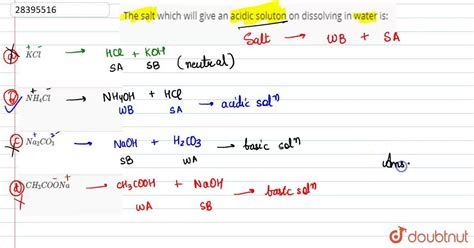 28395516
The salt which will give an acidic soluton on dissolving in water is:
Salt → WB + SA
a) K⁺Cl⁻ → HCl + KOH
SA SB (neutral)
b) NH₄⁺Cl⁻ → NH₄OH + HCl → acidic solⁿ
WB SA
c) Na₂⁺CO₃²⁻ → NaOH + H₂CO₃ → basic solⁿ
SB WA
Ans.
d) CH₃COO⁻Na⁺ → CH₃COOH + NaOH → basic solⁿ
WA SB
doubtnut